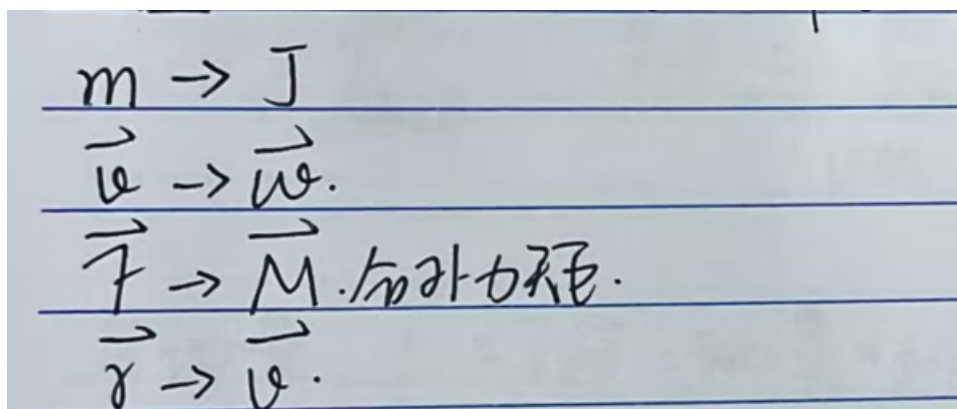 m → J
v⃗ → w⃗.
F⃗ → M⃗.合外力矩.
r⃗ → v⃗.